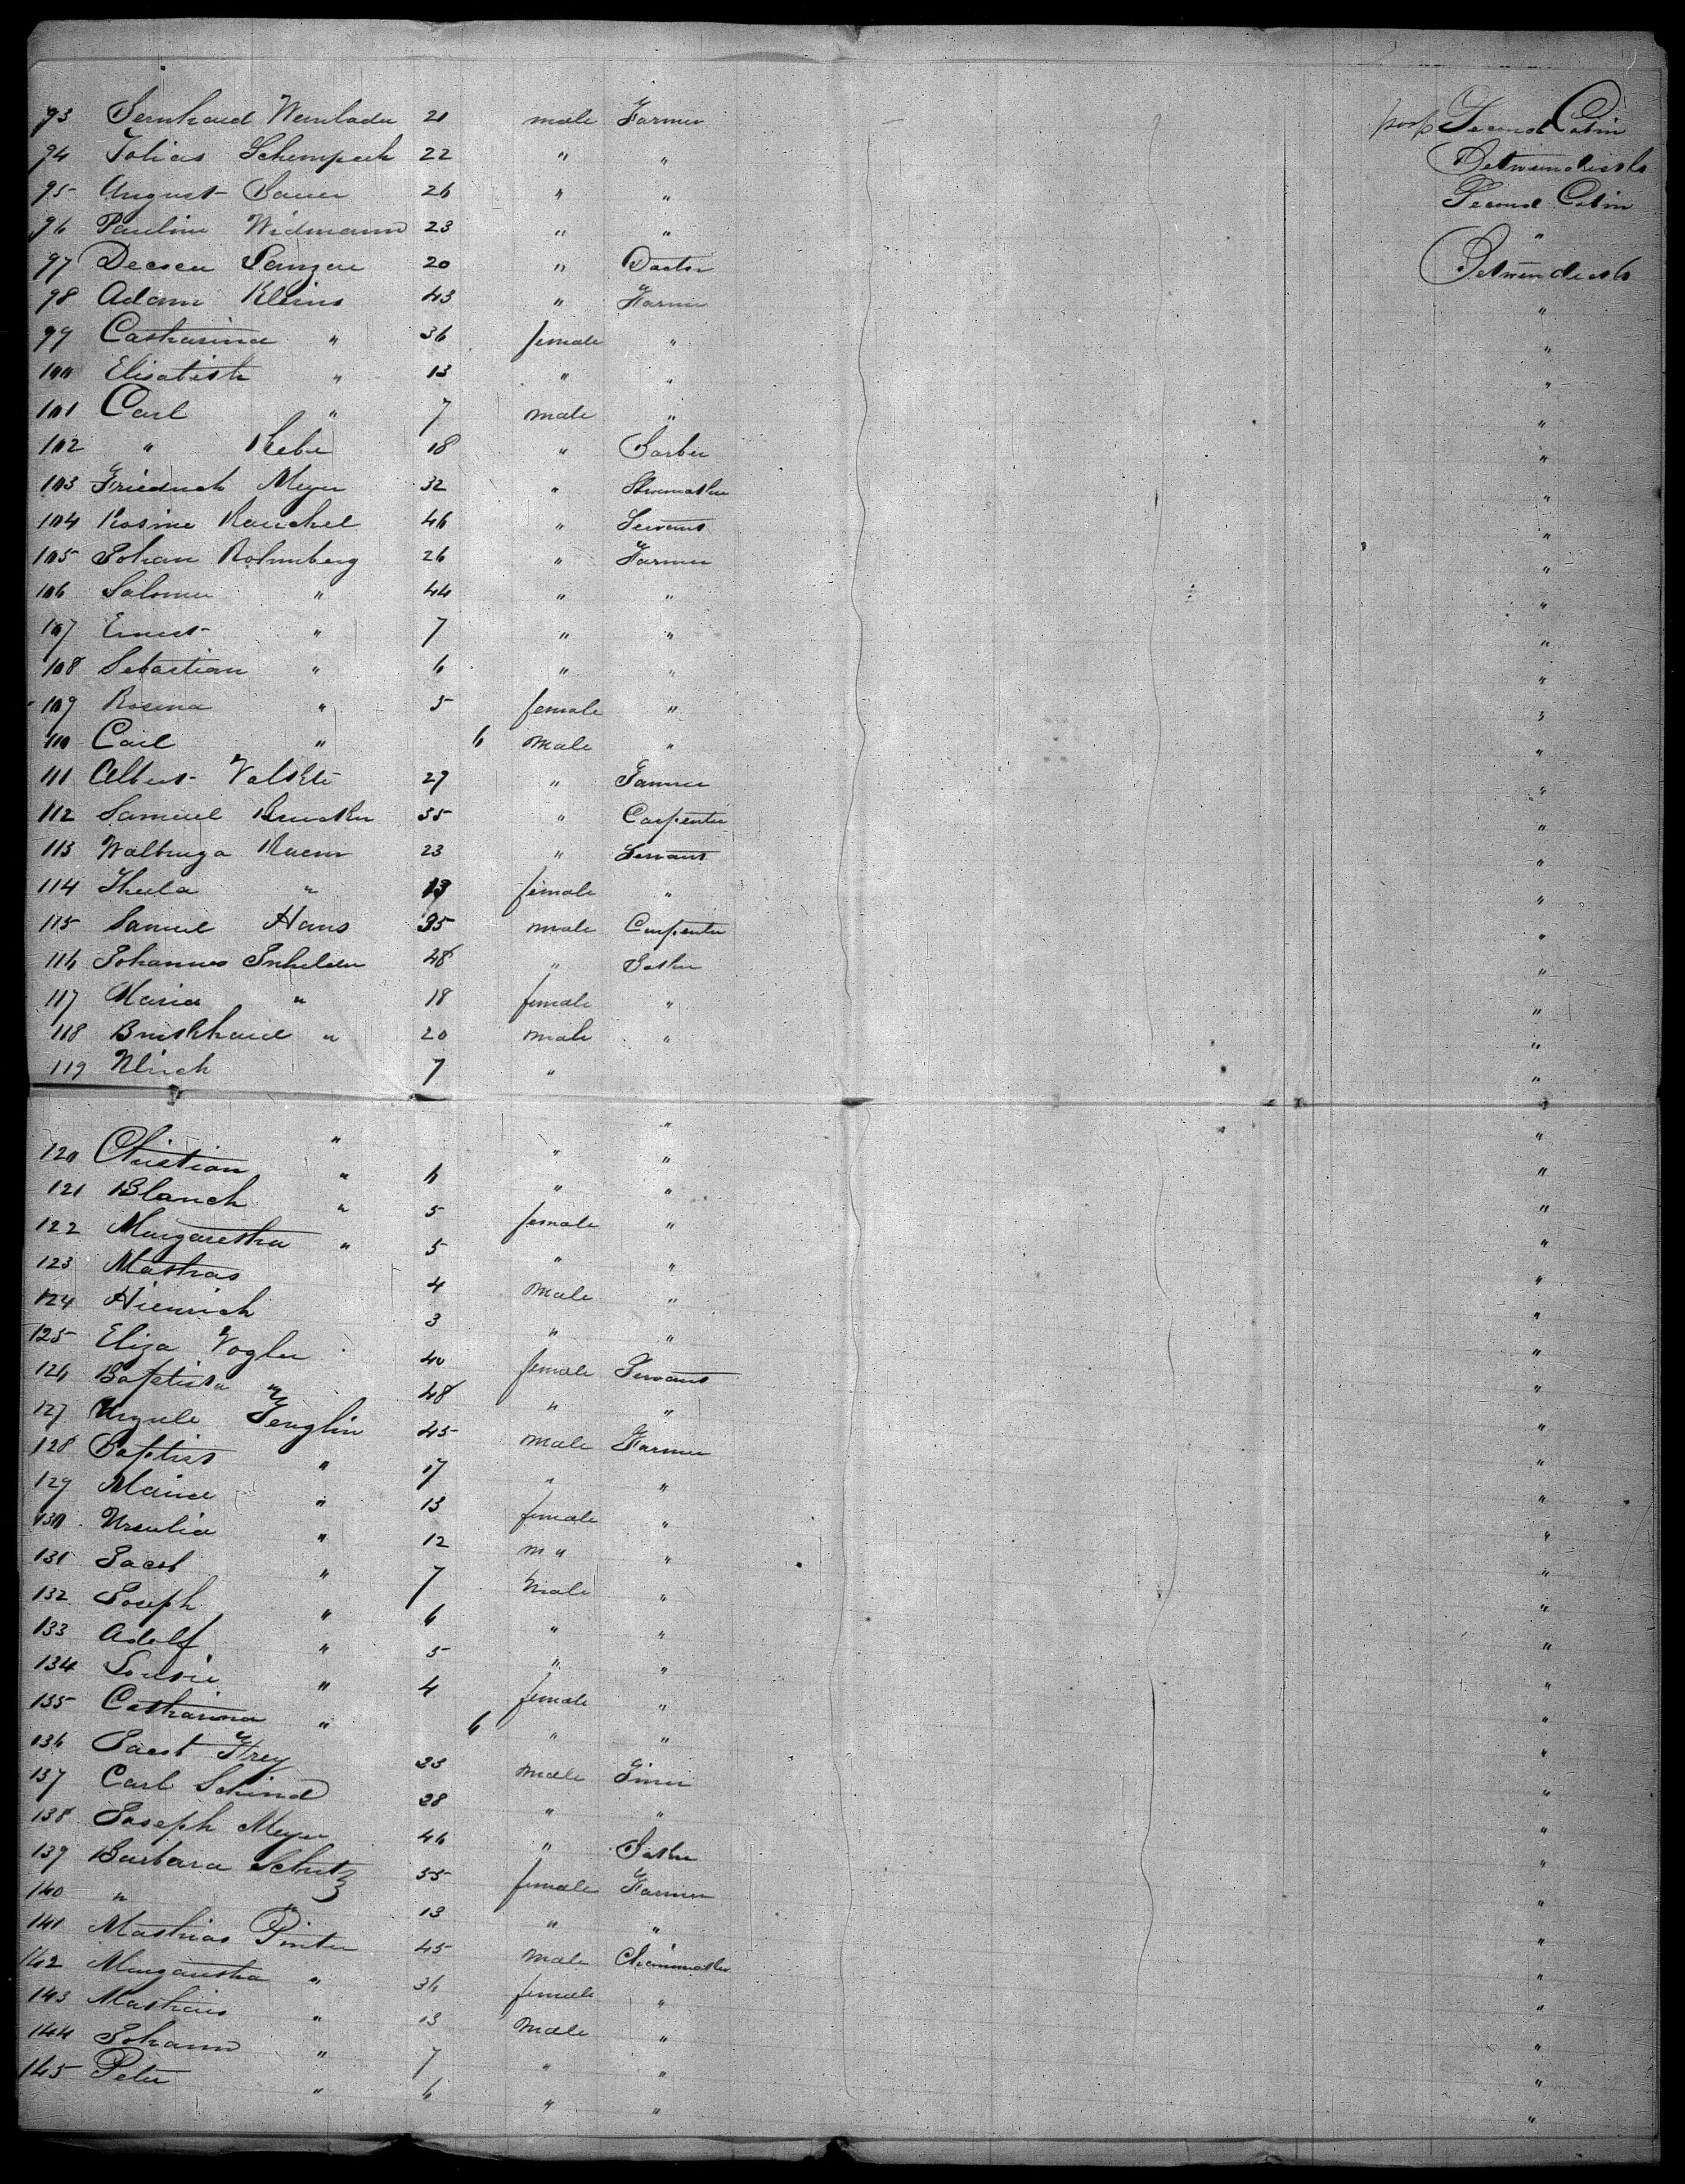 93 Bernhard 21 male Farmer poop Second Cabin
94 Tobias Schempeck 22 " " Betweendecks
95 August Bauer 26 " " Second Cabin
96 Pauline Widmann 23 " " "
97 20 " Doctor Betweendecks
98 Adam Kleins 43 " Farmer "
99 Catharina " 36 female " "
100 Elisabeth " 13 " " "
101 Carl " 7 male " "
102 " 18 " Barber "
103 Friedrich Meyer 32 " Shoemaker "
104 Rosine Rauchel 46 " Servant "
105 Johan 26 " Farmer "
106 Salomea " 44 " " "
107 Ernest " 7 " " "
108 Sebastian " 6 " " "
109 Rosina " 5 female " "
110 Carl " 6 male " "
111 Albert 27 " "
112 Samuel 35 " Carpenter "
113 Walbruga 23 " Servant "
114 Thecla " 13 female " "
115 Samuel Hans 35 male Carpenter "
116 Johannes 48 " "
117 Maria " 18 female " "
118 Burkhard " 20 male " "
119 Ulrich " 7 " " "
120 Christian " 6 " " "
121 Blanch " 5 female " "
122 Margaretha " 5 " " "
123 Mathias 4 male " "
124 Hienrich 3 " " "
125 Eliza Vogler 40 female Servant "
126 Baptista " 48 " " "
127 Ursule Fenglin 45 male Farmer "
128 Baptist " 17 " " "
129 Maria " 13 female " "
130 Ursulia " 12 m " " "
131 Jacob " 7 male " "
132 Joseph " 6 " " "
133 Adolf " 5 " " "
134 Lousie " 4 female " "
135 Catharina " 6 " " "
136 Jacob Frey 23 male "
137 Carl Schind 28 " " "
138 Joseph Meyer 46 " "
139 Barbara Schutz 55 female Farmer "
140 " " 13 " " "
141 Mathias Pinter 45 male "
142 Margaretha " 36 female " "
143 Mathias " 13 male " "
144 Johann " 7 " " "
145 Peter " 6 " " "